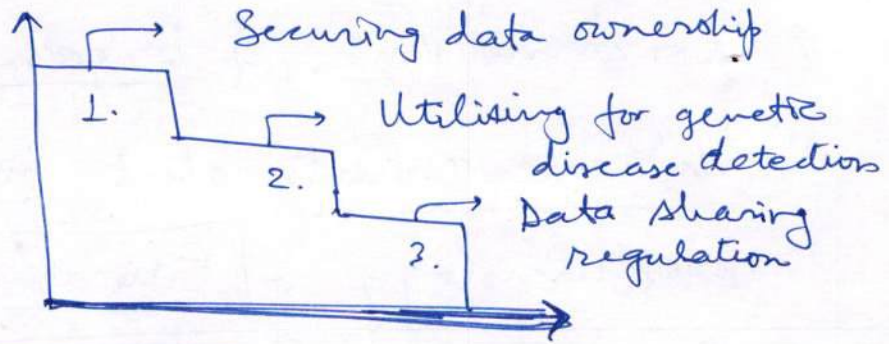 Securing data ownership
1.
Utilising for genetic
disease detection
2.
Data sharing
3.
regulation